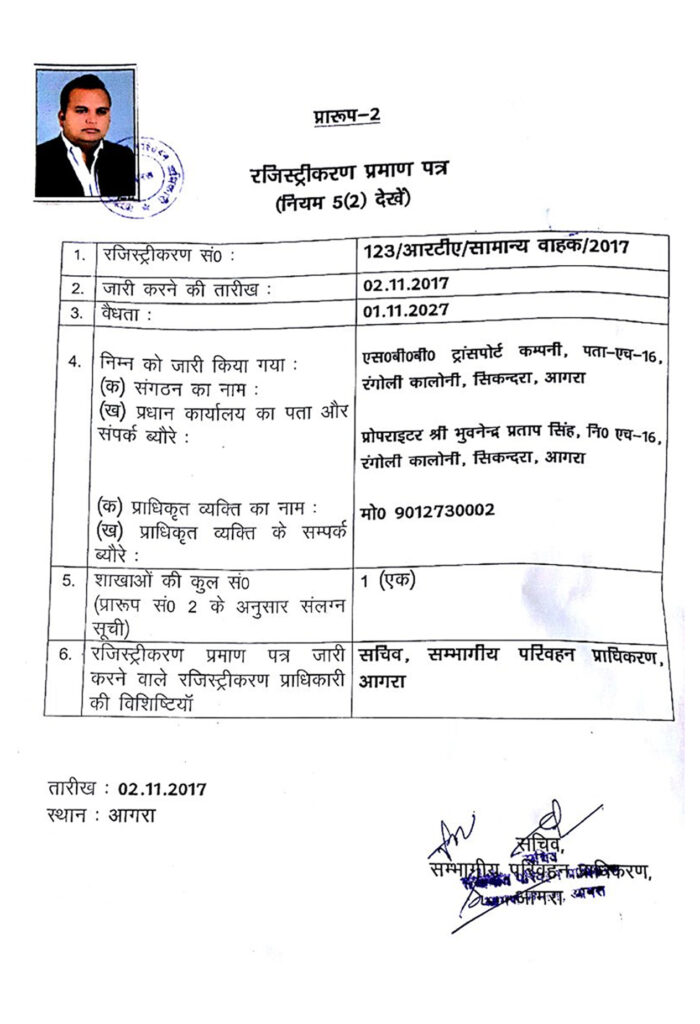 प्रारूप-2
रजिस्ट्रीकरण प्रमाण पत्र
(नियम 5(2) देखें)
1. रजिस्ट्रीकरण सं0 : 123/आरटीए/सामान्य वाहक/2017
2. जारी करने की तारीख : 02.11.2017
3. वैधता : 01.11.2027
4. निम्न को जारी किया गया : एस0बी0बी0 ट्रांसपोर्ट कम्पनी, पता-एच-16,
(क) संगठन का नाम : रंगोली कालोनी, सिकन्दरा, आगरा
(ख) प्रधान कार्यालय का पता और
संपर्क ब्यौरे : प्रोपराइटर श्री भुवनेन्द्र प्रताप सिंह, नि0 एच-16,
रंगोली कालोनी, सिकन्दरा, आगरा
(क) प्राधिकृत व्यक्ति का नाम : मो0 9012730002
(ख) प्राधिकृत व्यक्ति के सम्पर्क
ब्यौरे :
5. शाखाओं की कुल सं0 1 (एक)
(प्रारूप सं0 2 के अनुसार संलग्न
सूची)
6. रजिस्ट्रीकरण प्रमाण पत्र जारी सचिव, सम्भागीय परिवहन प्राधिकरण,
करने वाले रजिस्ट्रीकरण प्राधिकारी आगरा
की विशिष्टियॉ
तारीख : 02.11.2017
स्थान : आगरा
सचिव,
सचिव
सम्भागीय परिवहन प्राधिकरण,
आगरा